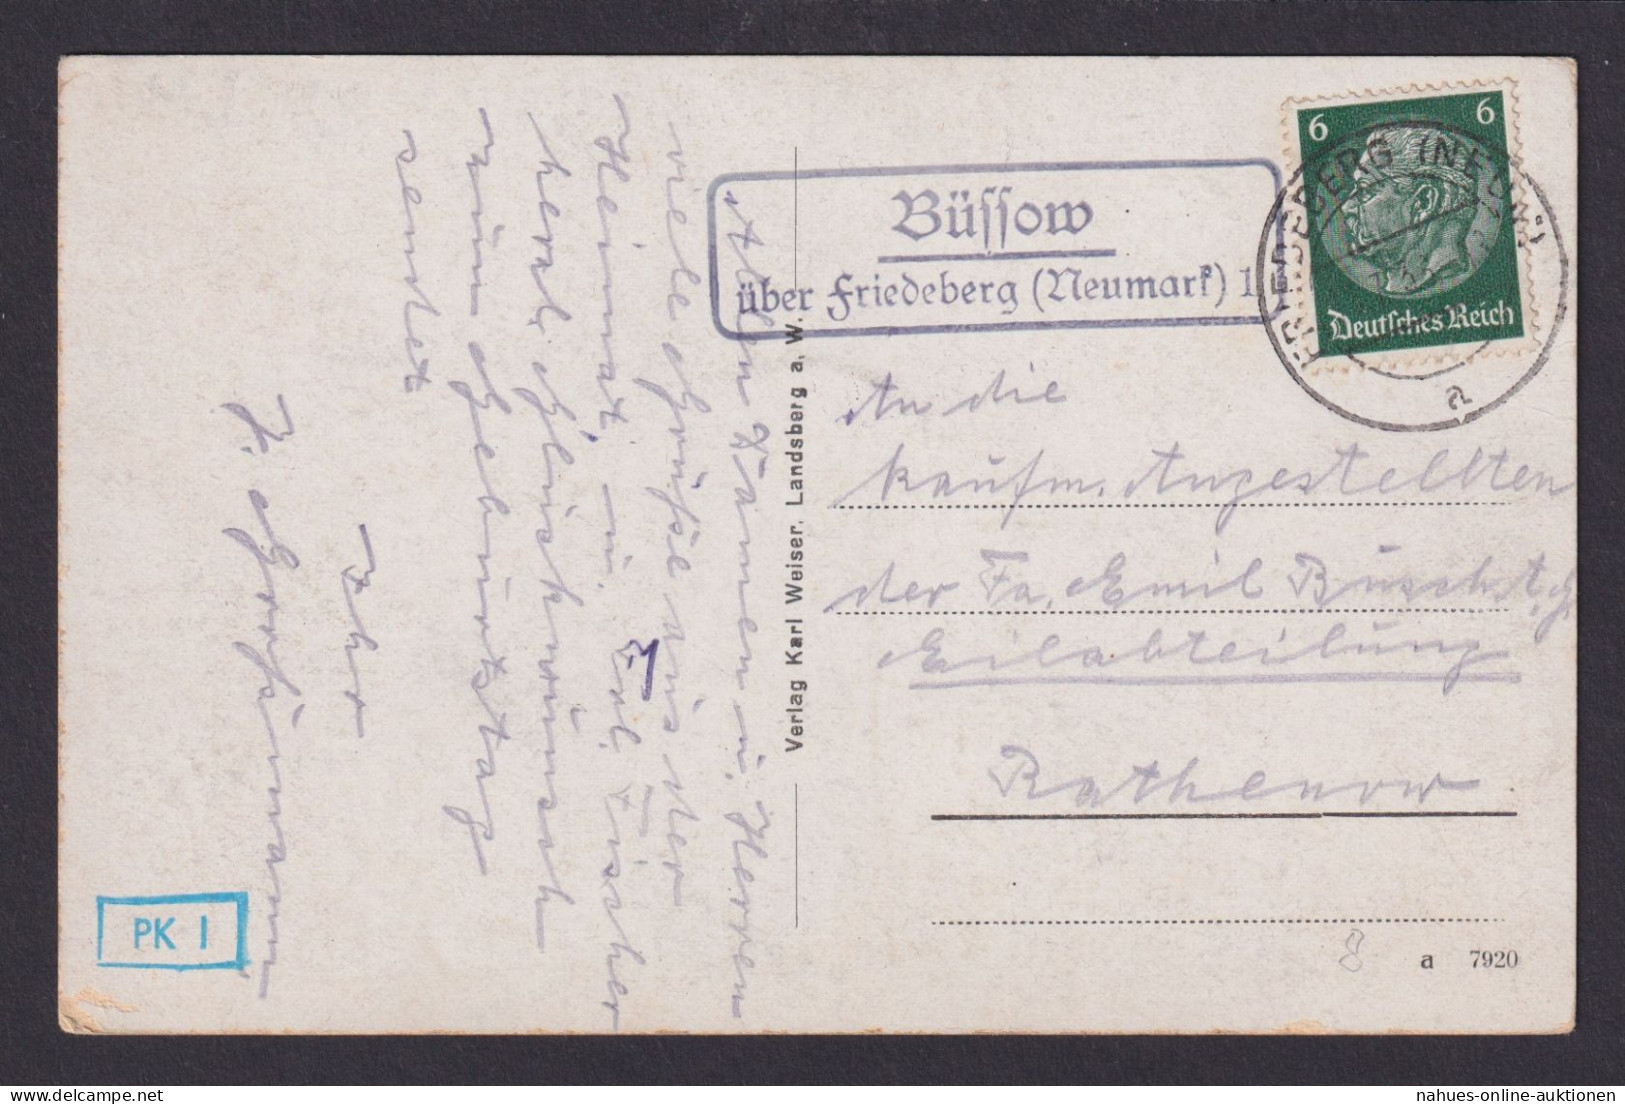 Allen Damen u. Herren
viele Grüße aus der
Heimat, u. Frl. Fischer
herzl. Glückwünsch
zum Geburtstag
sendet
Ihr
Büſſow
über Friedeberg (Neumark) 1
FRIEDEBERG (NEUM)
a
6 6
Deutſches Reich
An die
kaufm. Angestellten
der Fa. Emil Busch A.G.
Eilabteilung
Rathenow
Verlag Karl Weiser, Landsberg a. W.
PK I
8
a 7920
nahues-online-auktionen